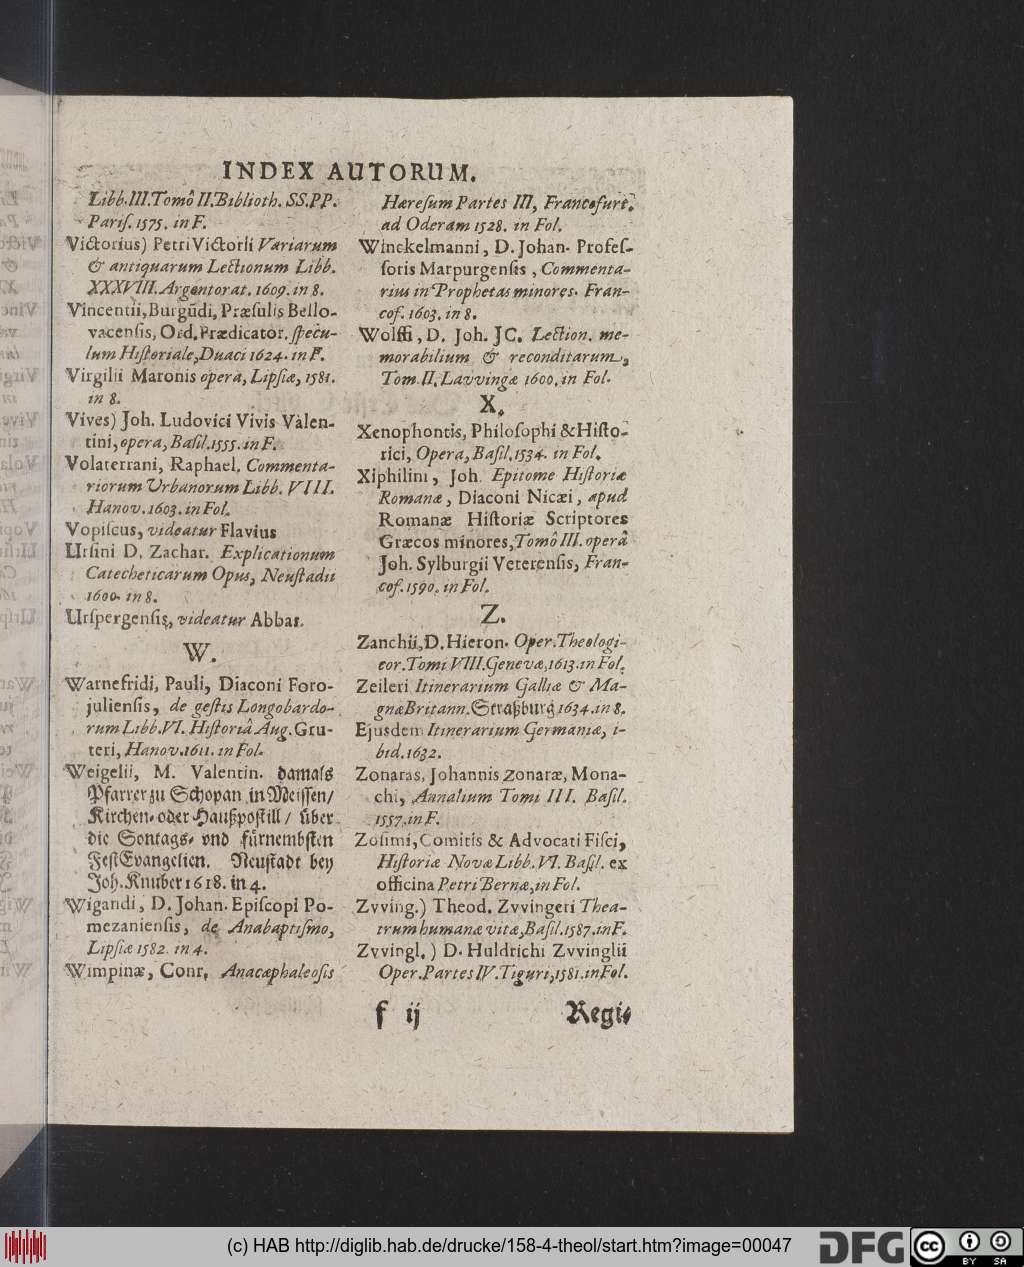 INDEX AUTORUM.
Libb. III. Tomô II. Biblioth. SS. PP.
Pariſ. 1575. in F.
Victorius) Petri Victorii Variarum
& antiquarum Lectionum Libb.
XXXVIII. Argentorat. 1609. in 8.
Vincentii, Burgūdi, Præſulis Bello-
vacenſis, Ord. Prædicator. ſpecu-
lum Hiſtoriale, Duaci 1624. in F.
Virgilii Maronis opera, Lipſiæ, 1581.
in 8.
Vives) Joh. Ludovici Vivis Valen-
tini, opera, Baſil. 1555. in F.
Volaterrani, Raphael. Commenta-
riorum Urbanorum Libb. VIII.
Hanov. 1603. in Fol.
Vopiſcus, videatur Flavius
Urſini D. Zachar. Explicationum
Catecheticarum Opus, Neuſtadii
1600. in 8.
Urſpergenſis, videatur Abbas.
W.
Warnefridi, Pauli, Diaconi Foro-
julienſis, de geſtis Longobardo-
rum Libb. VI. Hiſtoriâ Aug. Gru-
teri, Hanov. 1611. in Fol.
Weigelii, M. Valentin. damals
Pfarrer zu Schopan in Meiſſen/
Kirchen- oder Haußpoſtill / über
die Sontags- vnd fürnembſten
Feſt Evangelien. Neuſtadt bey
Joh. Knuber 1618. in 4.
Wigandi, D. Johan. Epiſcopi Po-
mezanienſis, de Anabaptiſmo,
Lipſiæ 1582. in 4.
Wimpinæ, Conr. Anacephaleoſis
Hæreſum Partes III, Francofurt.
ad Oderam 1528. in Fol.
Winckelmanni, D. Johan. Profeſ-
ſoris Marpurgenſis, Commenta-
rius in Prophetas minores. Fran-
cof. 1603. in 8.
Wolffii, D. Joh. JC. Lection. me-
morabilium & reconditarum,
Tom. II. Lavvingæ 1600. in Fol.
X.
Xenophontis, Philoſophi & Hiſto-
rici, Opera, Baſil. 1534. in Fol.
Xiphilini, Joh. Epitome Hiſtoriæ
Romanæ, Diaconi Nicæi, apud
Romanæ Hiſtoriæ Scriptores
Græcos minores, Tomô III. operâ
Joh. Sylburgii Veterenſis, Fran-
cof. 1590. in Fol.
Z.
Zanchii, D. Hieron. Oper. Theologi-
cor. Tomi VIII. Genevæ, 1613. in Fol.
Zeileri Itinerarium Galliæ & Ma-
gnæ Britann. Straßburg 1634. in 8.
Ejusdem Itinerarium Germaniæ, i-
bid. 1632.
Zonaras, Johannis Zonaræ, Mona-
chi, Annalium Tomi III. Baſil.
1557. in F.
Zoſimi, Comitis & Advocati Fiſci,
Hiſtoriæ Novæ Libb. VI. Baſil. ex
officina Petri Bernæ, in Fol.
Zvving.) Theod. Zvvingeri Thea-
trum humanæ vitæ, Baſil. 1587. in F.
Zvvingl.) D. Huldrichi Zvvinglii
Oper. Partes IV. Tiguri, 1581. in Fol.
f ij
Regi-
(c) HAB http://diglib.hab.de/drucke/158-4-theol/start.htm?image=00047
DFG
cc
BY SA